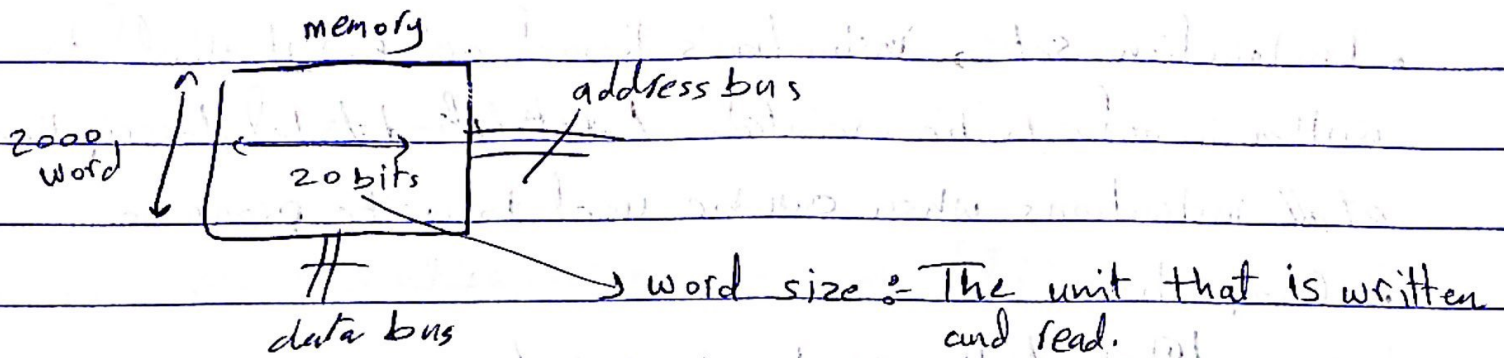 memory
address bus
2000
word
20 bits
word size :- The unit that is written
and read.
data bus